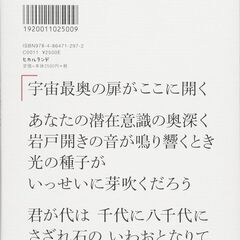 1920011025009
ISBN978-4-86471-297-2
C0011 ¥2500E
ヒカルランド
定価=本体2500円+税
宇宙最奥の扉がここに開く
あなたの潜在意識の奥深く
岩戸開きの音が鳴り響くとき
光の種子が
いっせいに芽吹くだろう
君が代は 千代に八千代に
さざれ石の いわおとなりて